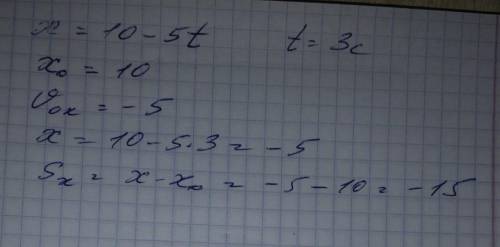 x = 10 - 5t t = 3c
x₀ = 10
v₀ₓ = - 5
x = 10 - 5·3 = - 5
Sₓ = x - x₀ = - 5 - 10 = - 15